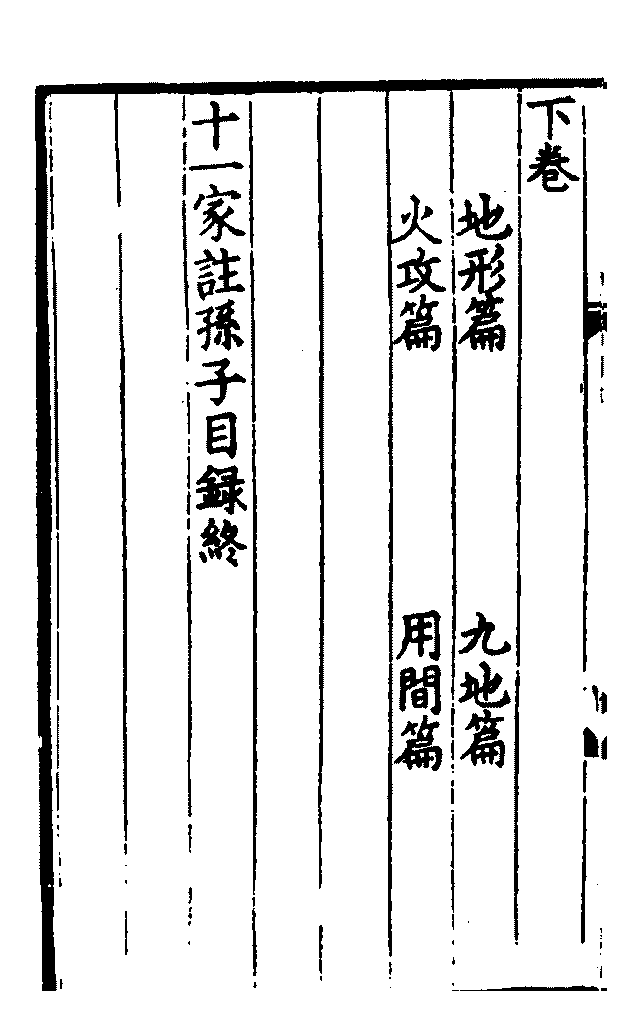 下卷
地形篇　九地篇
火攻篇　用間篇
十一家註孫子目録終